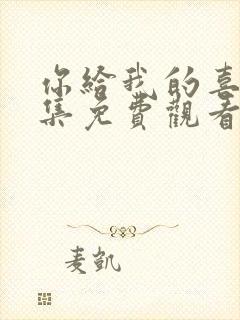 你給我的喜
集免費觀看
麦凱